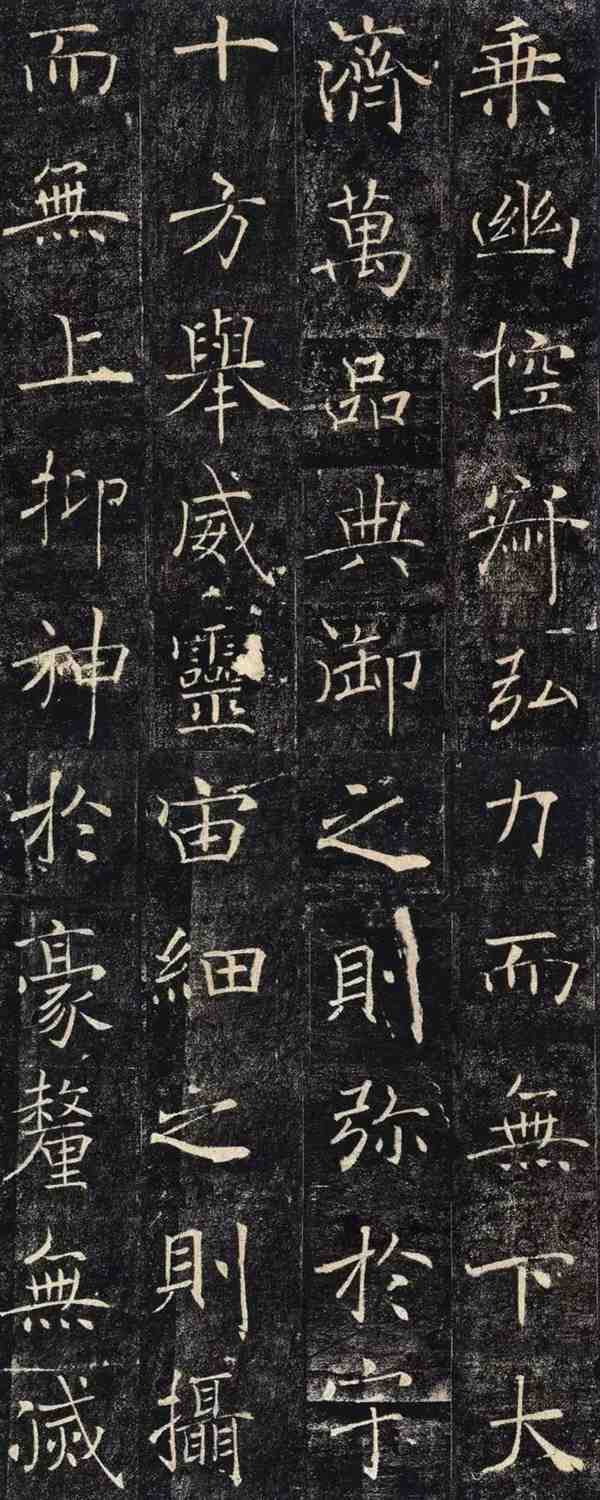 乗幽控寂弘力而無下大
濟萬品典御之則弥於宇
十方舉威靈宙細之則攝
而無上抑神於豪釐無滅